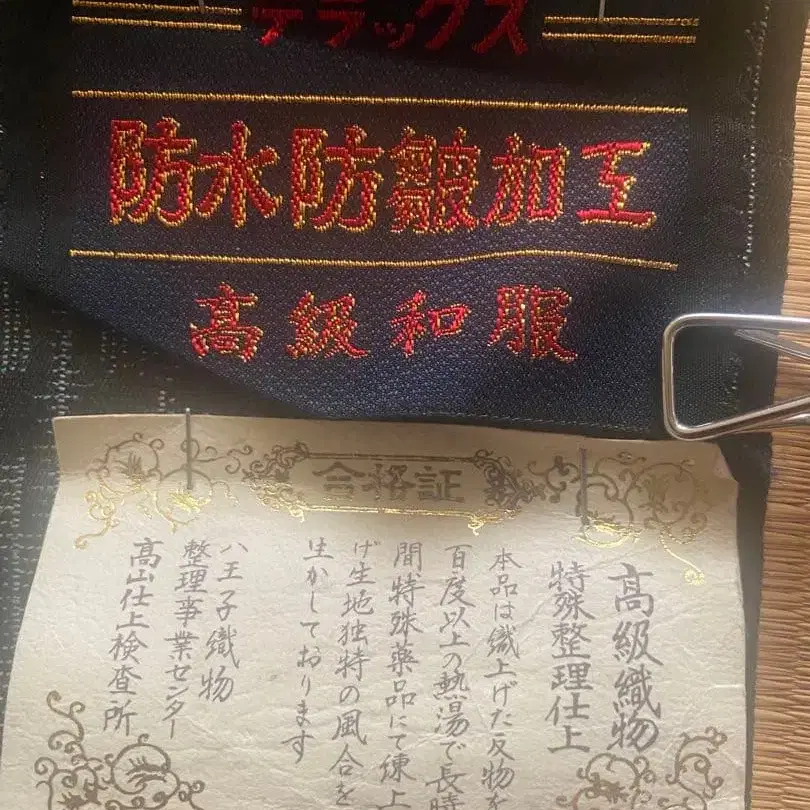 デラックス
防水防皺加工
高級和服
合格証
高級織物
特殊整理仕上
本品は織上げた反物を
百度以上の熱湯で長時
間特殊薬品にて練上
げ生地独特の風合を
生かしております
八王子織物
整理事業センター
高山仕上検査所